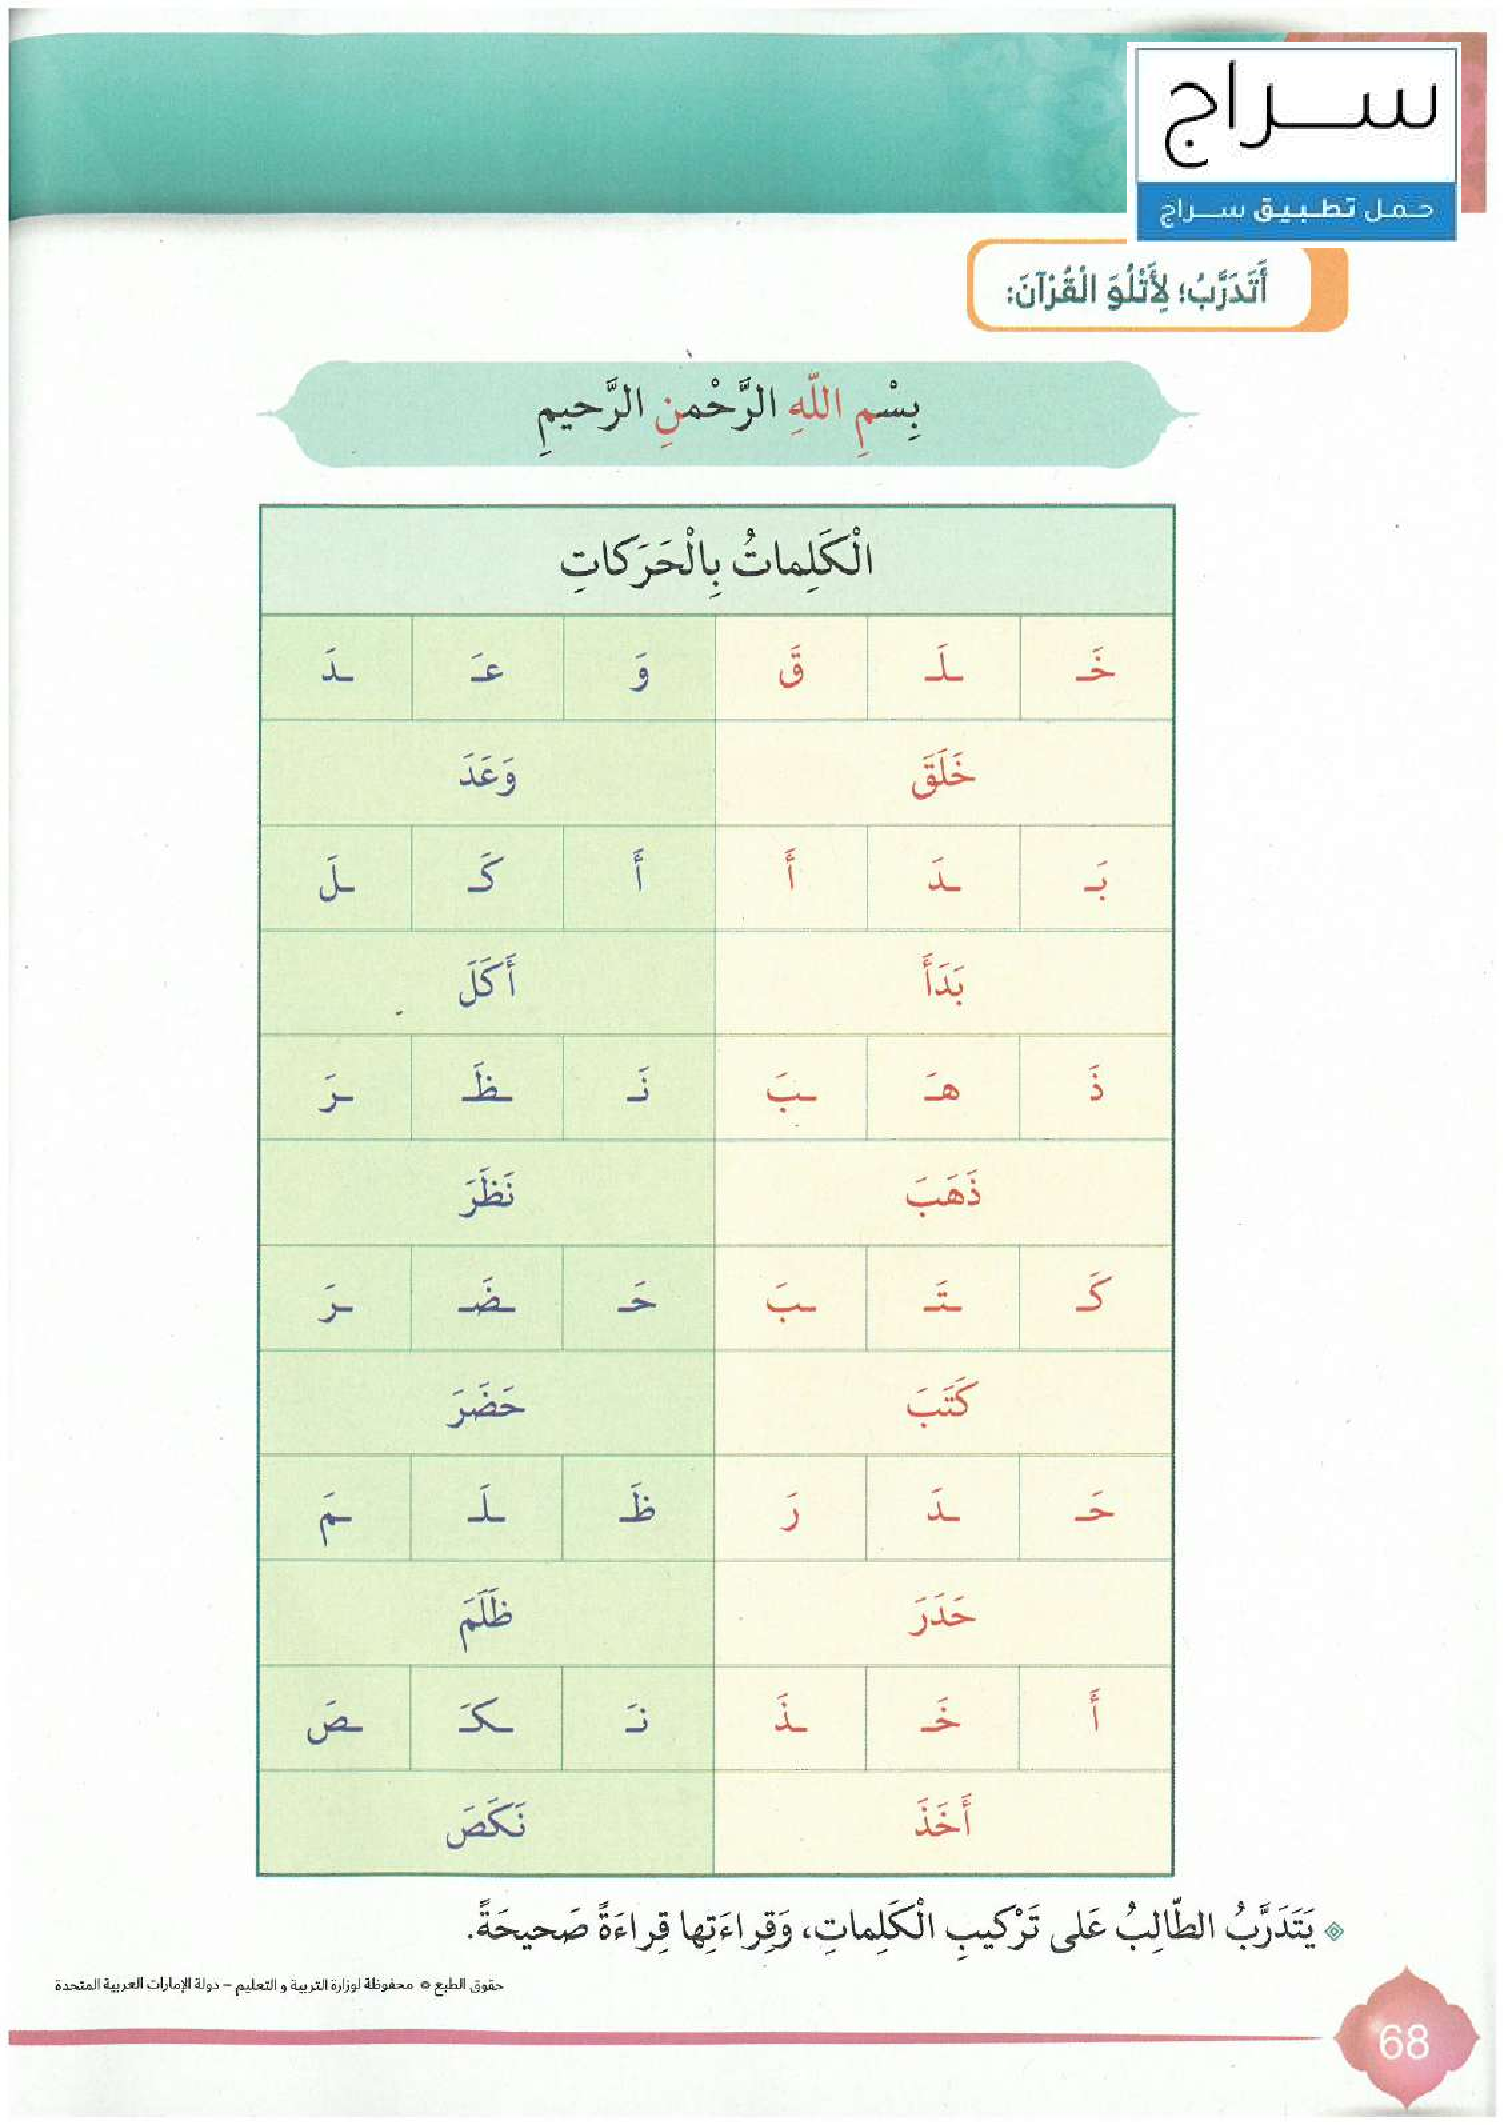 سراج
حمل تطبيق سراج
أَتَدَرَّبُ؛ لِأَتْلُوَ الْقُرْآنَ:
بِسْمِ اللّهِ الرَّحْمنِ الرَّحيمِ
الْكَلِماتُ بِالْحَرَكاتِ
خَـ ـلَـ قَ وَ عَـ ـدَ
خَلَقَ وَعَدَ
بَـ ـدَ أَ أَ كَـ ـلَ
بَدَأَ أَكَلَ
ذَ هَـ ـبَ نَـ ـظَـ ـرَ
ذَهَبَ نَظَرَ
كَـ ـتَـ ـبَ حَـ ـضَـ ـرَ
كَتَبَ حَضَرَ
حَـ ـدَ رَ ظَـ ـلَـ ـمَ
حَدَرَ ظَلَمَ
أَ خَـ ـذَ نَـ ـكَـ ـصَ
أَخَذَ نَكَصَ
يَتَدَرَّبُ الطّالِبُ عَلى تَرْكيبِ الْكَلِماتِ، وَقِراءَتِها قِراءَةً صَحيحَةً.
حقوق الطبع © محفوظة لوزارة التربية و التعليم – دولة الإمارات العربية المتحدة
68